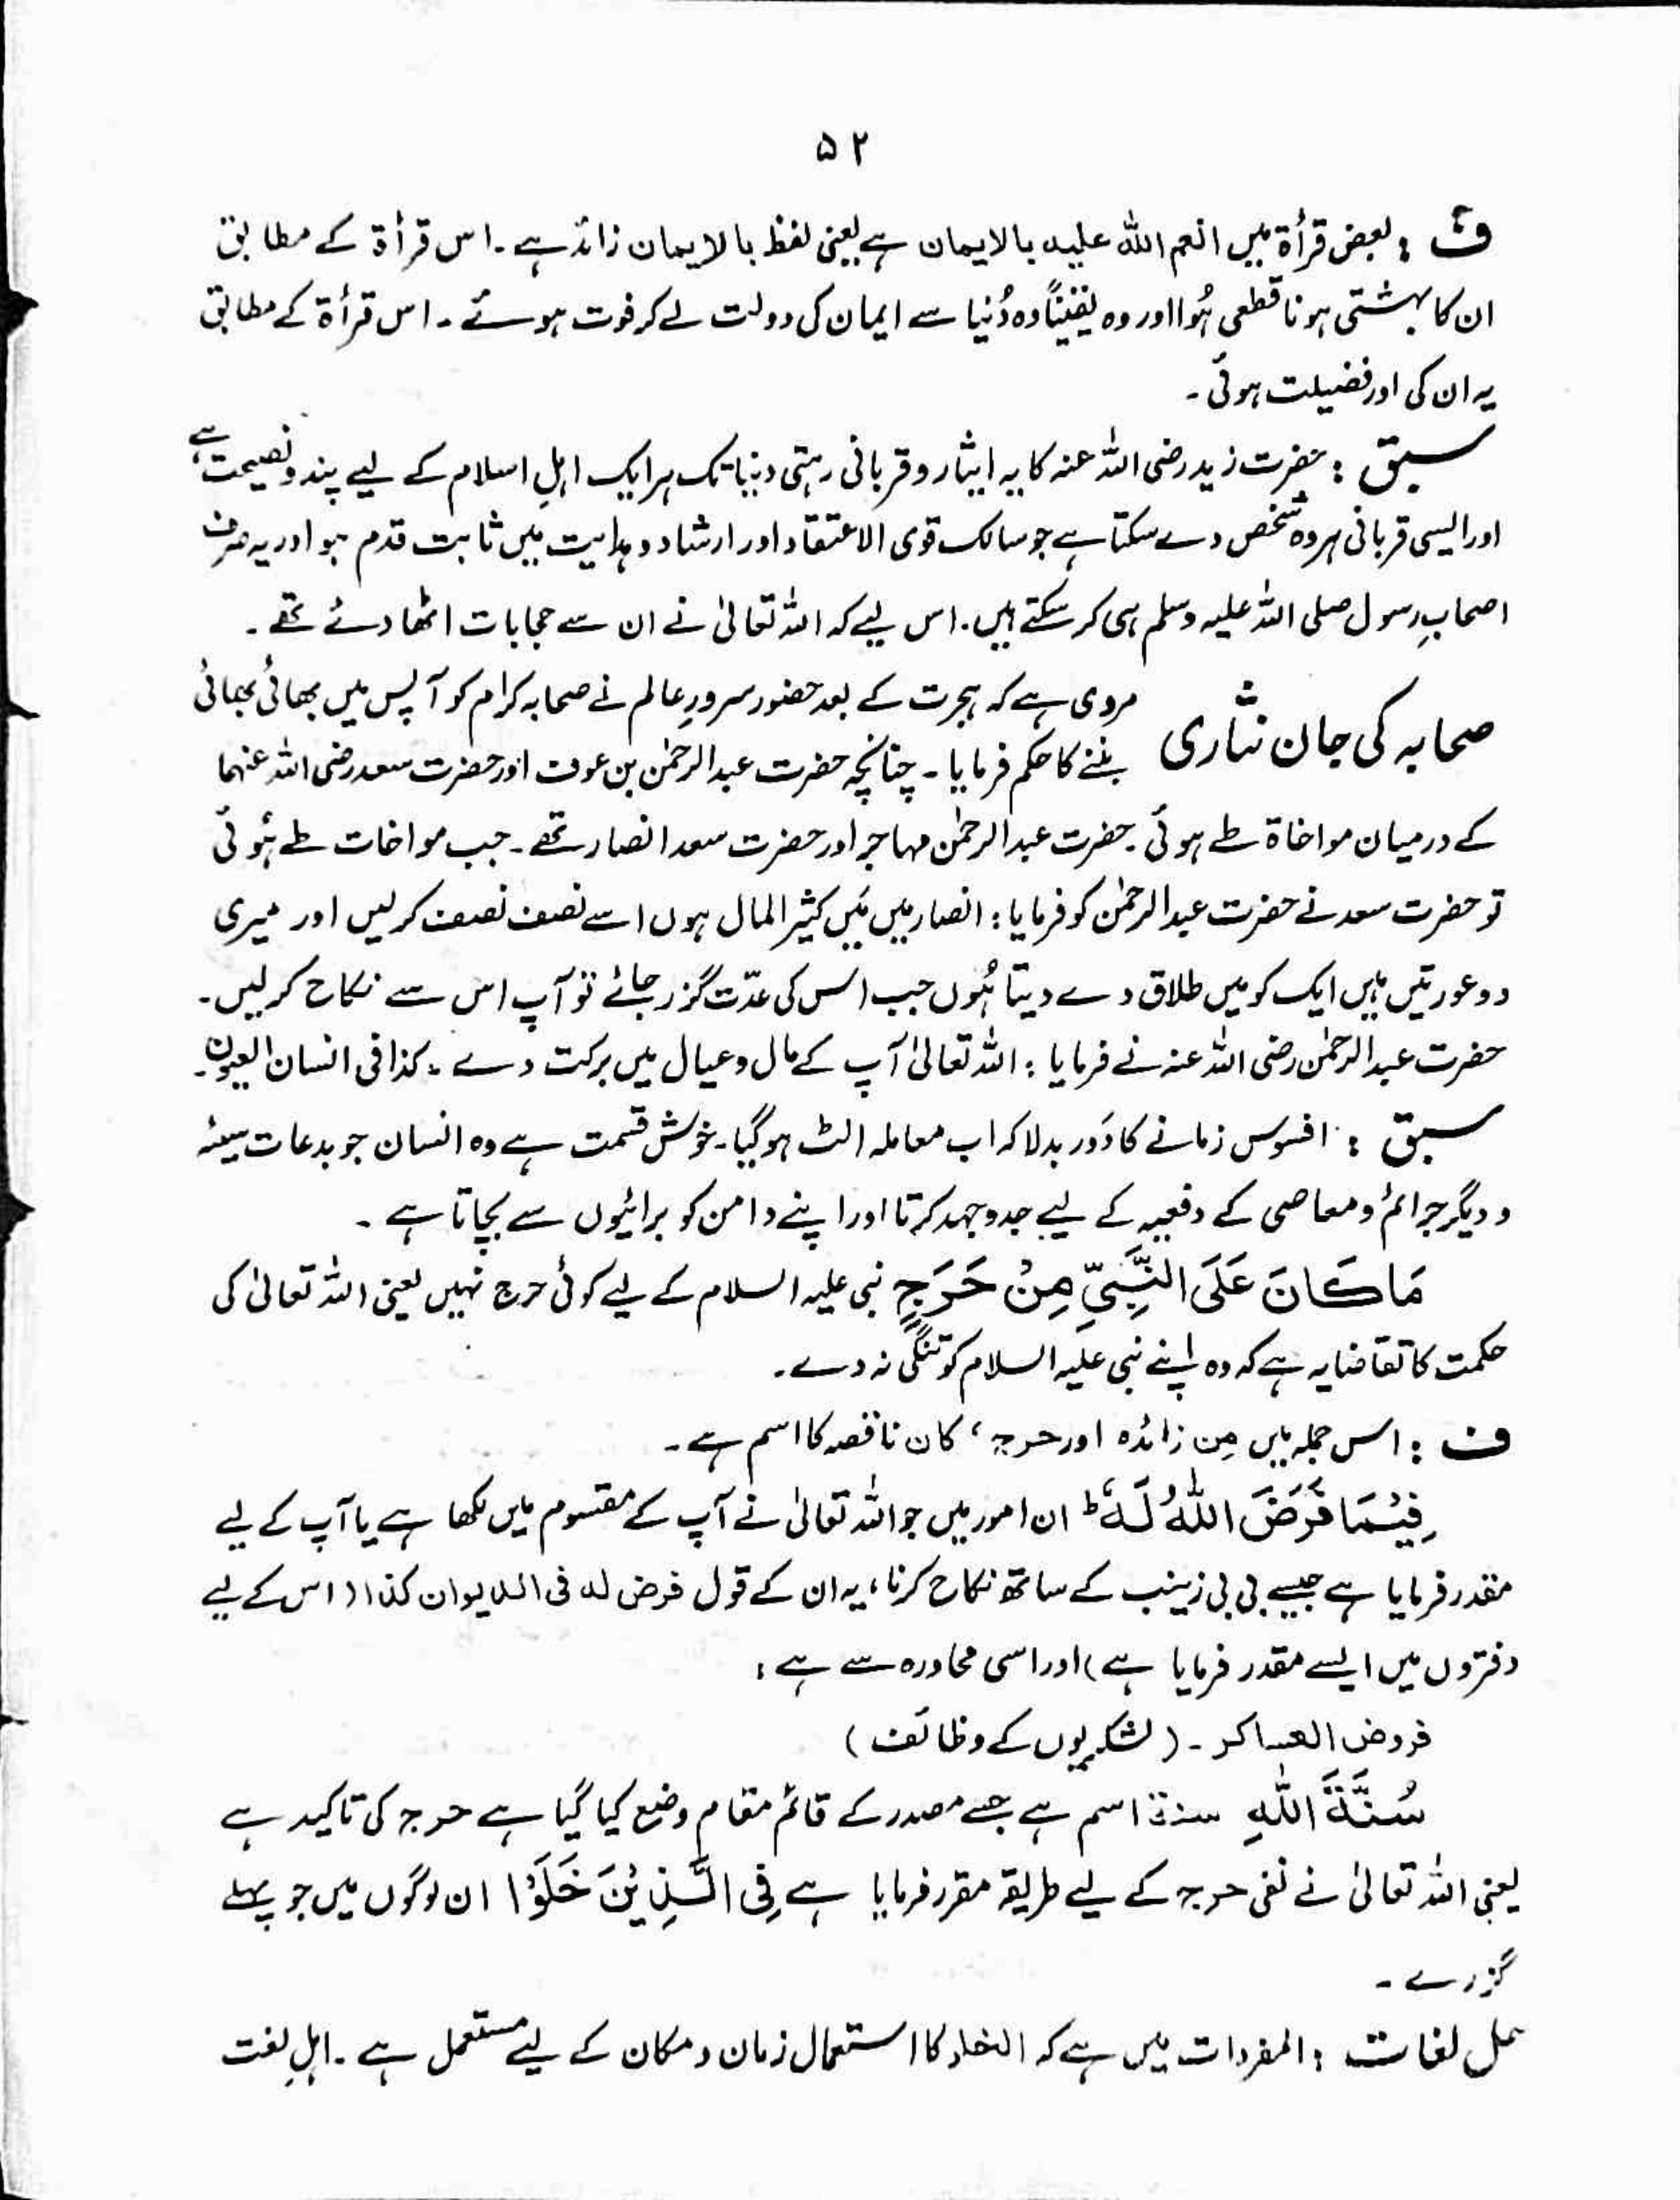 ۵۲
ف : بعض قرأۃ میں انعم اللہ علیہ بالایمان ہے یعنی لفظ بالایمان زائد ہے ۔ اس قرأۃ کے مطابق
ان کا بہشتی ہونا قطعی ہُوا اور وہ یقیناً وہ دُنیا سے ایمان کی دولت لے کر فوت ہوئے ۔ اس قرأۃ کے مطابق
یہ ان کی اور فضیلت ہوئی ۔
سبق : حضرت زید رضی اللہ عنہ کا یہ ایثار و قربانی رہتی دنیا تک ہر ایک اہلِ اسلام کے لیے پند و نصیحت ہے
اور ایسی قربانی ہر وہ شخص دے سکتا ہے جو سالک قوی الاعتقاد اور ارشاد و ہدایت میں ثابت قدم ہو اور یہ صرف
اصحابِ رسول صلی اللہ علیہ وسلم ہی کر سکتے ہیں ۔ اس لیے کہ اللہ تعالیٰ نے ان سے حجابات اٹھا دئے تھے ۔
صحابہ کی جان نثاری مروی ہے کہ ہجرت کے بعد حضور سرورِ عالم نے صحابہ کرام کو آپس میں بھائی بھائی
بننے کا حکم فرمایا ۔ چنانچہ حضرت عبدالرحمٰن بن عوف اور حضرت سعد رضی اللہ عنہما
کے درمیان مواخاۃ طے ہوئی ۔ حضرت عبدالرحمٰن مہاجر اور حضرت سعد انصار تھے ۔ جب مواخات طے ہُوئی
تو حضرت سعد نے حضرت عبدالرحمٰن کو فرمایا : انصار میں مَیں کثیر المال ہوں اسے نصف نصف کر لیں اور میری
دو عورتیں ہیں ایک کو میں طلاق دے دیتا ہُوں جب اس کی عدّت گزر جائے تو آپ اس سے نکاح کر لیں ۔
حضرت عبدالرحمٰن رضی اللہ عنہ نے فرمایا : اللہ تعالیٰ آپ کے مال و عیال میں برکت دے ۔ کذا فی انسان العیون ۔
سبق : افسوس زمانے کا دَور بدلا کہ اب معاملہ الٹ ہو گیا ۔ خوش قسمت ہے وہ انسان جو بدعات سیئہ
و دیگر جرائم و معاصی کے دفعیہ کے لیے جدوجہد کرتا اور اپنے دامن کو برائیوں سے بچاتا ہے ۔
مَا كَانَ عَلَى النَّبِيِّ مِنْ حَرَجٍ نبی علیہ السلام کے لیے کوئی حرج نہیں یعنی اللہ تعالیٰ کی
حکمت کا تقاضا یہ ہے کہ وہ اپنے نبی علیہ السلام کو تنگی نہ دے ۔
ف : اس جملہ میں مِن زائدہ اور حرج ، کان ناقصہ کا اسم ہے ۔
فِيْمَا فَرَضَ اللّٰهُ لَهٗ ؕ ان امور میں جو اللہ تعالیٰ نے آپ کے مقسوم میں لکھا ہے یا آپ کے لیے
مقدر فرمایا ہے جیسے بی بی زینب کے ساتھ نکاح کرنا ، یہ ان کے قول فرض لہ فی الدیوان کذا ( اس کے لیے
دفتروں میں ایسے مقدر فرمایا ہے ) اور اسی محاورہ سے ہے :
فروض العساکر ۔ ( لشکریوں کے وظائف )
سُنَّةَ اللّٰهِ سنۃ اسم ہے جسے مصدر کے قائم مقام وضع کیا گیا ہے حرج کی تاکید ہے
یعنی اللہ تعالیٰ نے نفی حرج کے لیے طریقہ مقرر فرمایا ہے فِى الَّذِيْنَ خَلَوْا ان لوگوں میں جو پہلے
گزرے ۔
حل لغات : المفردات میں ہے کہ الخلا کا استعمال زمان و مکان کے لیے مستعمل ہے ۔ اہلِ لغت